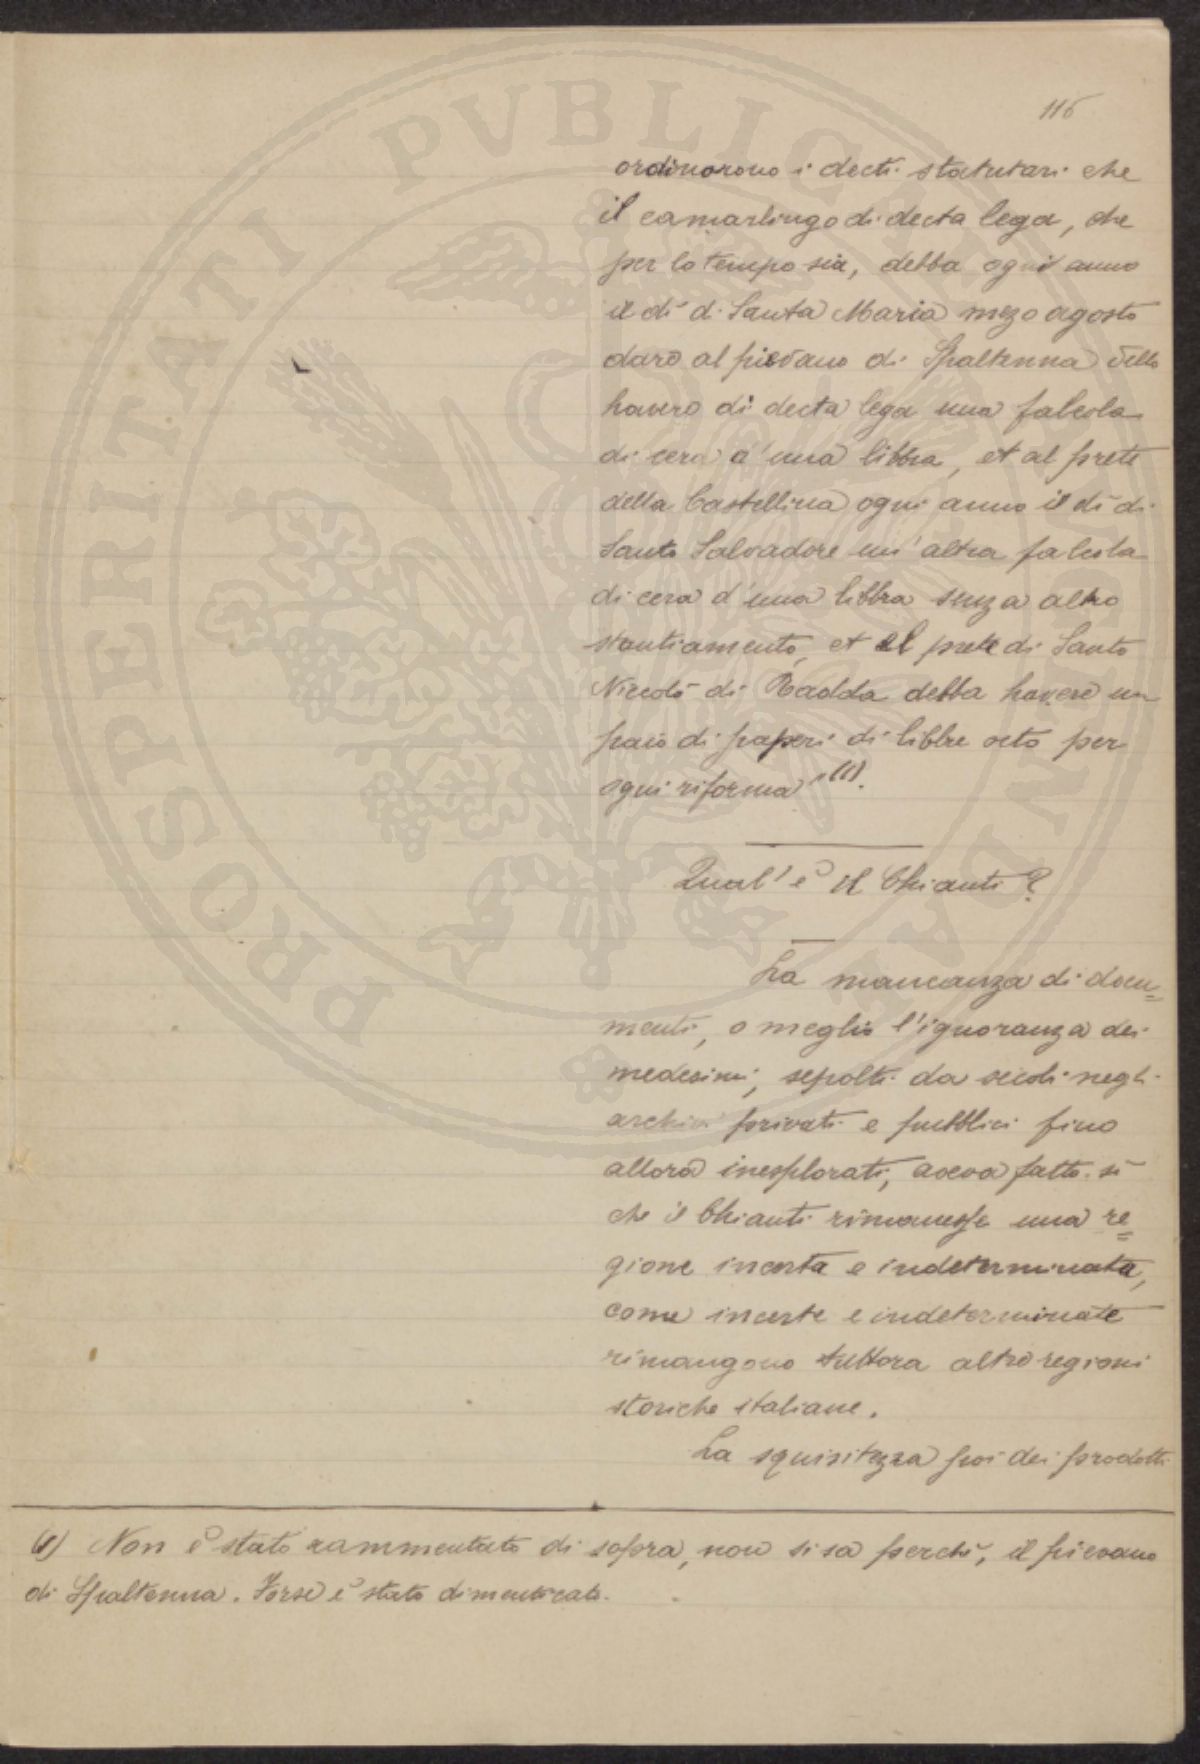 PROSPERITATI PVBLICAE AVGENDAE
116
ordinorono i decti statutari che
il camarlingo di decta lega, che
per lo tempo sia, debba ogni anno
il dì di Santa Maria mezo agosto
dare al piovano di Spaltenna dello
havere di decta lega una falcola
di cera d'una libbra, et al prete
della Castellina ogni anno il dì di
Santo Salvadore un'altra falcola
di cera d'una libbra senza altro
stantiamento, et al prete di Santo
Niccolò di Radda debba havere un
paio di paperi di libbre octo per
ogni riforma" (1).
Qual'è il Chianti?
La mancanza di docu=
menti, o meglio l'ignoranza dei
medesimi, sepolti da secoli negli
archivi privati e pubblici fino
allora inesplorati, aveva fatto sì
che il Chianti rimanesse una re=
gione incerta e indeterminata,
come incerte e indeterminate
rimangono tuttora altre regioni
storiche italiane.
La squisitezza poi dei prodotti
(1) Non è stato rammentato di sopra, non si sa perchè, il pievano
di Spaltenna. Forse è stato dimenticato.